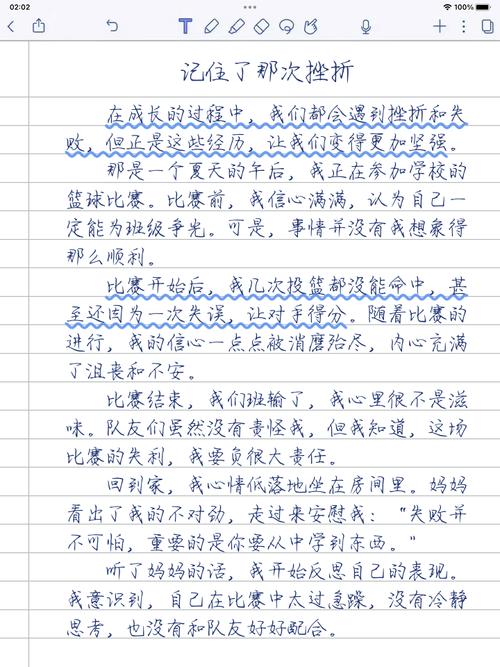 02:02
100%
记住了那次挫折
在成长的过程中，我们都会遇到挫折和失
败，但正是这些经历，让我们变得更加坚强。
那是一个夏天的午后，我正在参加学校的
篮球比赛。比赛前，我信心满满，认为自己一
定能为班级争光。可是，事情并没有我想象得
那么顺利。
比赛开始后，我几次投篮都没能命中，甚
至还因为一次失误，让对手得分。随着比赛的
进行，我的信心一点点被消磨殆尽，内心充满
了沮丧和不安。
比赛结束，我们班输了，我心里很不是滋
味。队友们虽然没有责怪我，但我知道，这场
比赛的失利，我要负很大责任。
回到家，我心情低落地坐在房间里。妈妈
看出了我的不对劲，走过来安慰我：“失败并
不可怕，重要的是你要从中学到东西。”
听了妈妈的话，我开始反思自己的表现。
我意识到，自己在比赛中太过急躁，没有冷静
思考，也没有和队友好好配合。